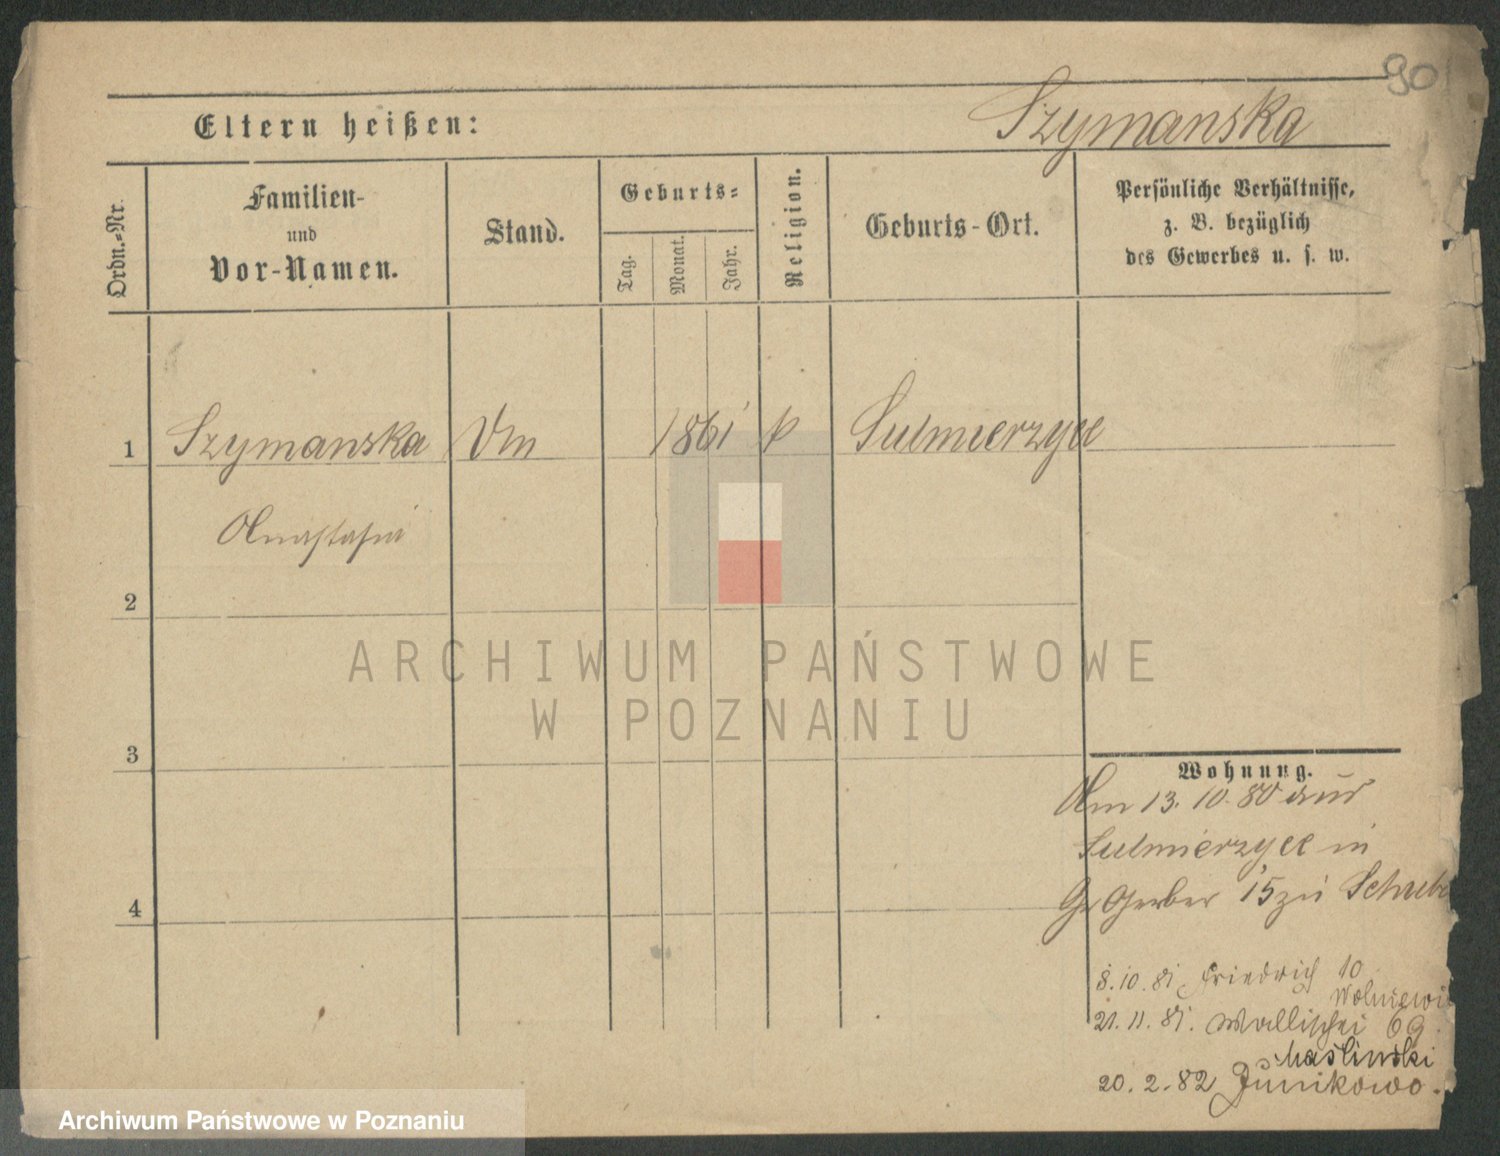 90
Eltern heißen: Szymanska
Ordn.-Nr.
Familien-
und
Vor-Namen.
Stand.
Geburts-
Tag.
Monat.
Jahr.
Religion.
Geburts-Ort.
Persönliche Verhältnisse,
z. B. bezüglich
des Gewerbes u. s. w.
1 Szymanska 1861 k Sulmierzyce
Anastasia
2
ARCHIWUM PAŃSTWOWE
W POZNANIU
3
Wohnung.
Am 13. 10. 80 aus
Sulmierzyce in
Gr Gerber 15 zu
4
8. 10. 81. Friedrich 10
21. 11. 81. Wallischei 69.
Maslinski
20. 2. 82 Junikowo.
Archiwum Państwowe w Poznaniu